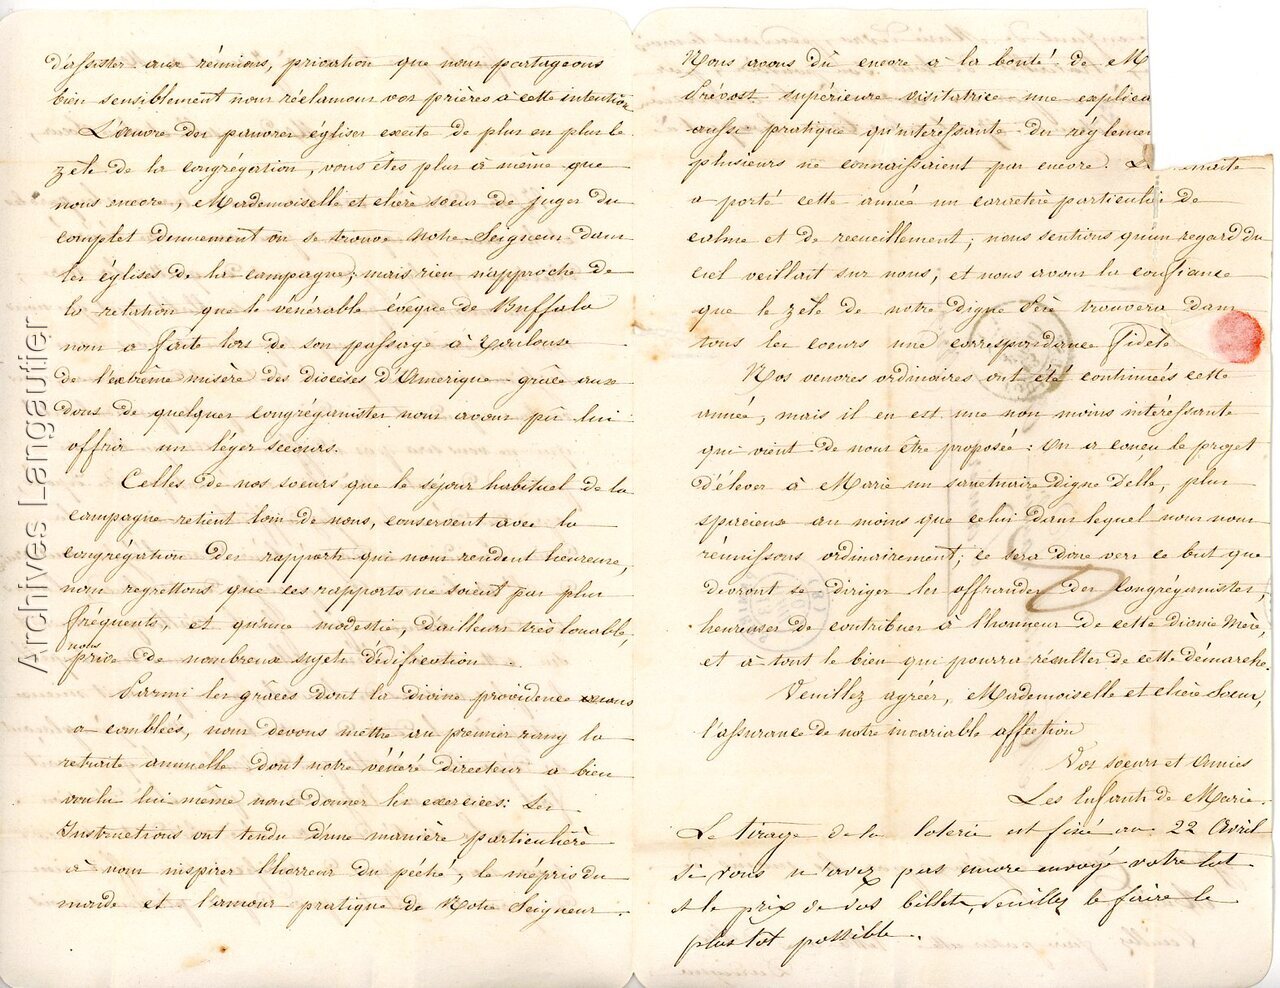 d'assister aux réunions, privation que nous partageons
bien sensiblement nous réclamons vos prières à cette intention
L'œuvre des pauvres églises excite de plus en plus le
zèle de la congrégation, vous êtes plus à même que
nous encore, Mademoiselle et chère sœur de juger du
complet dénuement où se trouve Notre-Seigneur dans
les églises de la campagne; mais rien n'approche de
la relation que le vénérable évêque de Buffalo
nous a faite lors de son passage à Toulouse
de l'extrême misère des diocèses d'Amérique grâce aux
dons de quelques congréganistes nous avons pu lui
offrir un léger secours.
Celles de nos sœurs que le séjour habituel de la
campagne retient loin de nous, conservent avec la
congrégation des rapports qui nous rendent heureuse,
nous regrettons que ces rapports ne soient pas plus
fréquents, et qu'une modestie, d'ailleurs très louable,
nous
prive de nombreux sujets d'édification.
Parmi les grâces dont la divine providence nous
a comblées, nous devons mettre au premier rang la
retraite annuelle dont notre vénéré directeur a bien
voulu lui même nous donner les exercices: Les
Instructions ont tendu d'une manière particulière
à nous inspirer l'horreur du péché, le mépris du
monde et l'amour pratique de Notre Seigneur.
Nous avons dû encore à la bonté de M
Prévost supérieure visitatrice une explica
aussi pratique qu'intéressante du règleme
plusieurs ne connaissaient pas encore. L
a porté cette année un caractère particulier de
calme et de recueillement; nous sentions qu'un regard du
ciel veillait sur nous, et nous avons la confiance
que le zèle de notre digne Père trouvera dans
tous les cœurs une correspondance fidèle
Nos œuvres ordinaires ont été continuées cette
année, mais il en est une non moins intéressante
qui vient de nous être proposée: On a conçu le projet
d'élever à Marie un sanctuaire digne d'elle, plus
spacieux au moins que celui dans lequel nous nous
réunissons ordinairement; ce sera donc vers ce but que
devront se diriger les offrandes des Congréganistes,
heureuses de contribuer à l'honneur de cette divine Mère,
et à tout le bien qui pourra résulter de cette démarche.
Veuillez agréer, Mademoiselle et chère Sœur,
l'assurance de notre invariable affection
Vos sœurs et Amies
Les Enfants de Marie.
Le tirage de la loterie est fixé au 22 Avril
Si vous n'avez pas encore envoyé votre lot
et le prix de vos billets, veuillez le faire le
plus tôt possible.
Archives Langautier